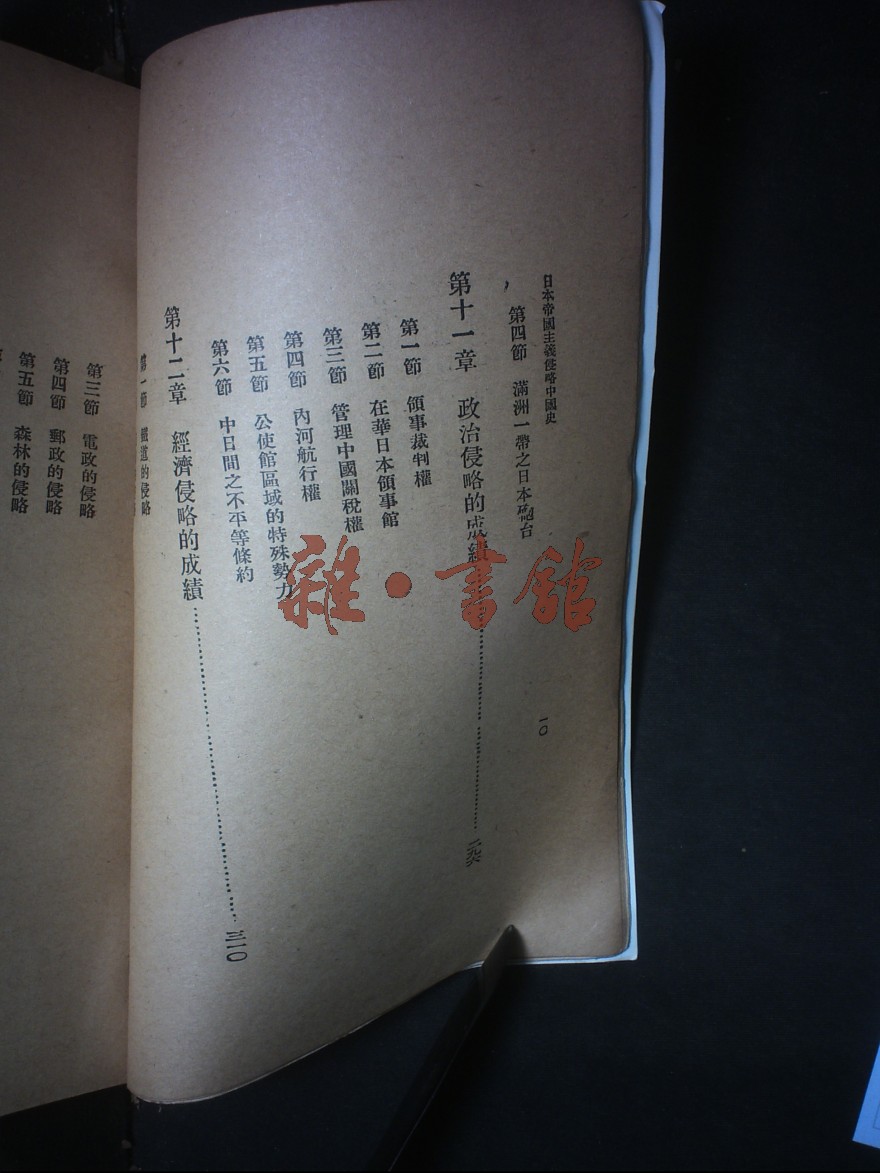 日本帝國主義侵略中國史
一〇
第四節 滿洲一帶之日本砲台
第十一章 政治侵略的成績
第一節 領事裁判權
第二節 在華日本領事館
第三節 管理中國關稅權
第四節 內河航行權
第五節 公使館區域的特殊勢力
第六節 中日間之不平等條約
第十二章 經濟侵略的成績……三一〇
第一節 鐵道的侵略
第三節 電政的侵略
第四節 郵政的侵略
第五節 森林的侵略
雜·書館